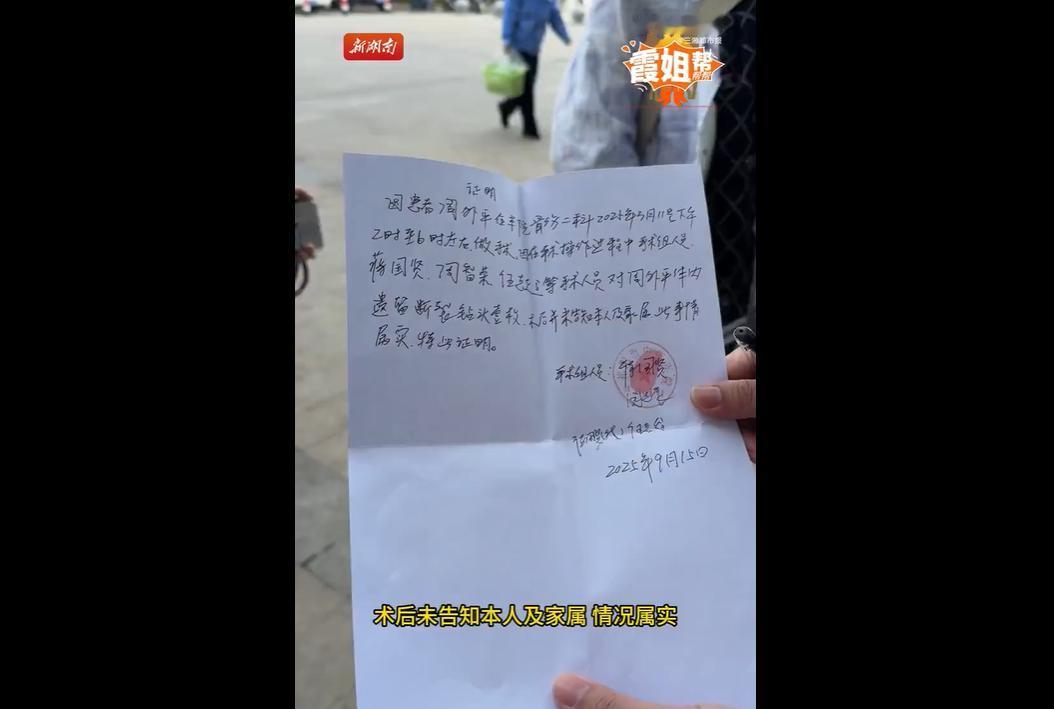 新湖南
三湘都市报
霞姐帮
帮帮
证明
因患者周外平在本院骨伤二科2025年3月11号下午
2时至6时左右做手术,因在手术操作过程中手术组人员
蒋国贤、周智荣 等手术人员对周外平体内
遗留断裂钻头壹枚,术后并未告知本人及家属此事情
属实,特此证明。
手术组人员:蒋国贤
2025年9月15日
术后未告知本人及家属 情况属实